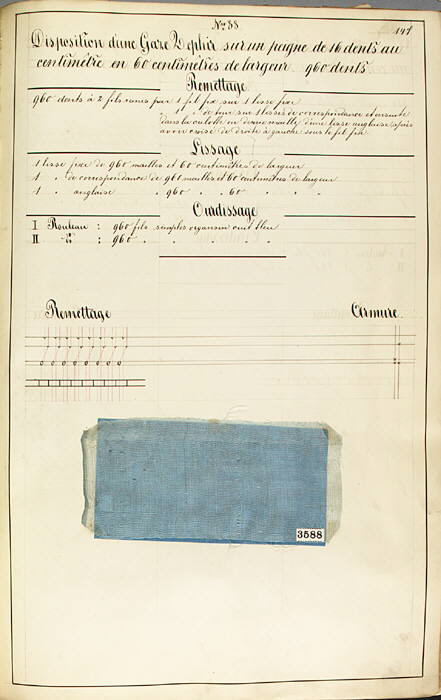 N° 88
141
Disposition d'une Gaze Zéphir sur un peigne de 16 dents au
centimètre en 60 centimètres de largeur 960 dents
Remettage
960 dents à 2 fils remis par 1 fil fixe sur 1 lisse fixe
1 d° de tour sur 1 lisses de correspondance et ensuite
dans la culotte ou demie maille d'une lisse anglaise après
avoir croisé de droite à gauche sous le fil fixe
Lissage
1 lisse fixe de 960 mailles et 60 centimètres de largeur
1 " de correspondance de 960 mailles et 60 centimètres de largeur
1 " anglaise " 960 " " 60 " " "
Ourdissage
I Rouleau : 960 fils simples organsin cuit bleu
II d° : 960 " " " " "
Remettage
Armure.
3588